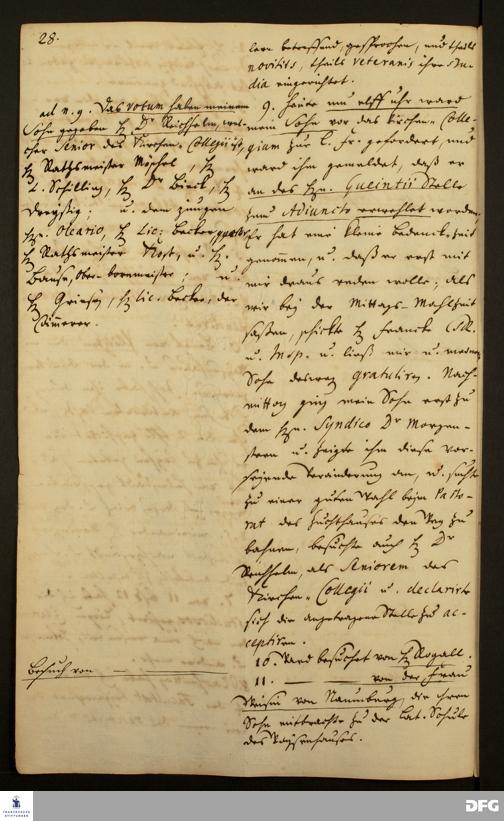 28.
ad n. 9. Das votum haben meinem
Sohn gegeben H. Dr Reichhelm, wel-
cher Senior des Kirchen-Collegii ist,
H. Rathsmeister Möschel, H.
L. Schilling, H. Dr Bieck, H.
Dreyßig; u. dem jungen
Hn. Oleario, H. Lic: Becker,
H. Rathsmeister Kost, u. H.
Bause, Ober-bornmeister; u.
H. H. Lic. Becker, der
Cämmerer.
Besuch von
lern betreffend, gesprochen, und theils
novitiis, theils veteranis ihre stu-
dia eingerichtet.
9. Heute um elff uhr ward
mein Sohn vor das Kirchen-Colle-
gium zur L. Fr. gefordert, und
ward ihm gemeldet, daß er
an des Hn. Gueintii Stelle
zum Adjuncto erwehlet worden.
Er hat eine kleine Bedenck-Zeit
genommen, u. daß er erst mit
mir draus reden wolle; als
wir bey der Mittags-Mahlzeit
saßen, schickte H. Francke Coll.
u. Insp. u. ließ mir u. meinem
Sohn deswegen gratuliren. Nach-
mittag ging mein Sohn erst zu
dem Hn. Syndico Dr Morgen-
stern u. zeigte ihm diese vor-
seyende Veränderung an, u. suchte
zu einer guten Wahl beym Pasto-
rat des Zuchthauses den Weg zu
bahnen, besuchte auch H. Dr
Reichhelm, als Seniorem des
Kirchen-Collegii u. declarirte
sich die angetragene Stelle zu ac-
ceptiren.
10. Ward besuchet von H. Rogall.
11. von der Frau
von Naumburg, die ihren
Sohn mitbrachte zu der lat. Schule
des Waysenhauses.
FRANCKESCHE
STIFTUNGEN
DFG